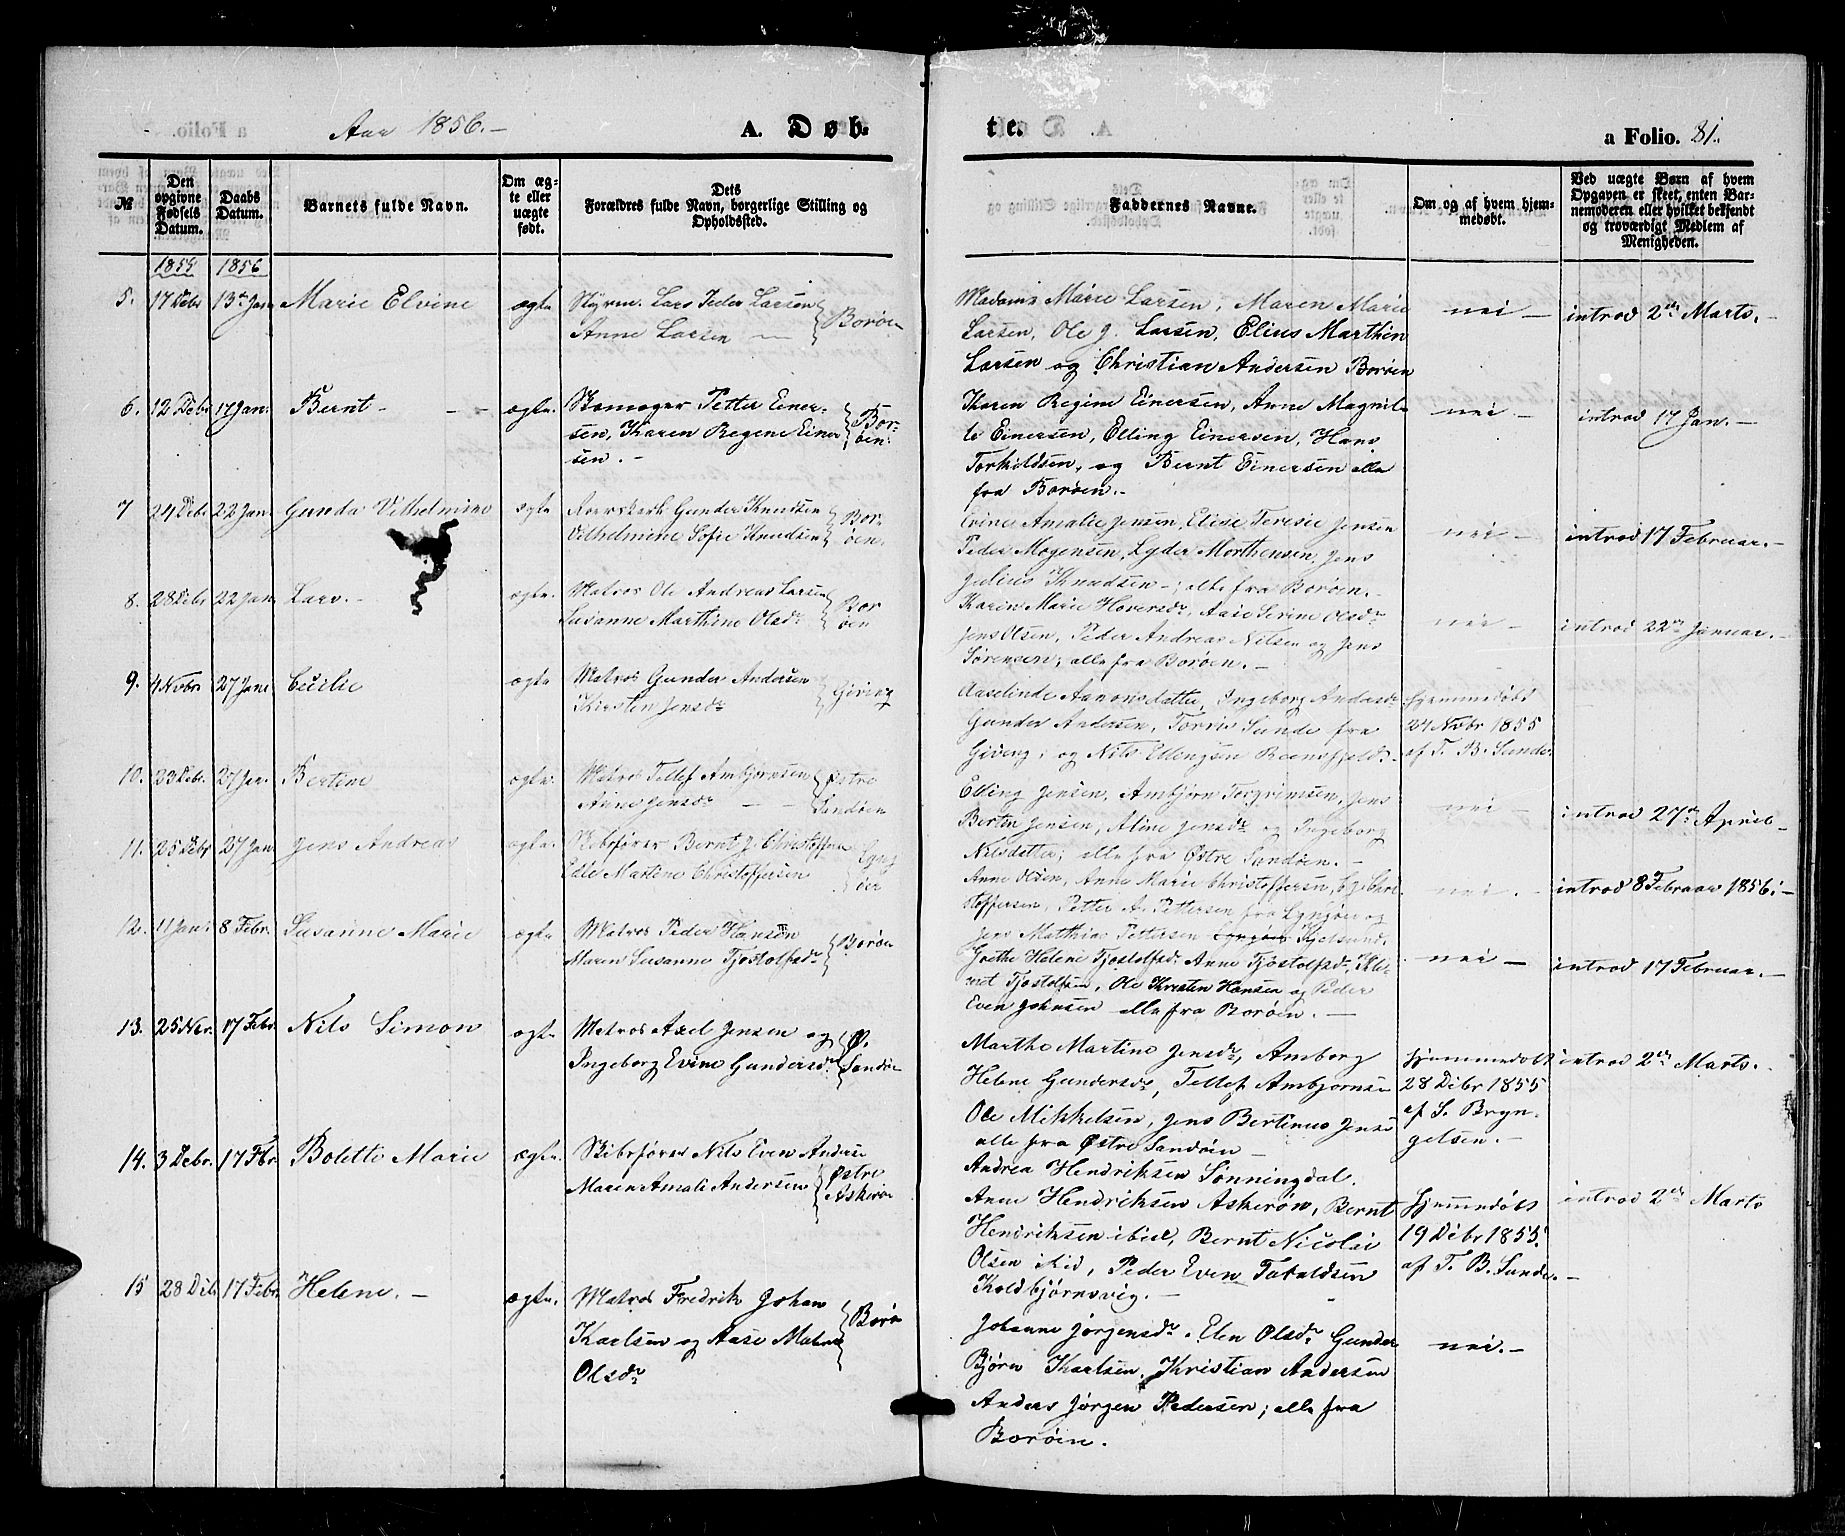 Aar 1856.—
A. Døb-
te.
a Folio. 81.
№
Den opgivne Fødsels Datum.
Daabs Datum.
Barnets fulde Navn.
Om ægte eller uægte født.
Dets Forældres fulde Navn, borgerlige Stilling og Opholdssted.
Faddernes Navne.
Om og af hvem hjemmedøbt.
Ved uægte Børn af hvem Opgaven er skeet, enten Barnemoderen eller hvilket bekjendt og troværdigt Medlem af Menigheden.
1855 1856
5. 17 Debr 13de Jan Marie Elvine ægte Styrm. Lars Peder Larsen
Anne Larsen — Borøen
Madame Marie Larsen, Maren Marie
Larsen, Ole J. Larsen, Elius Marthin
Larsen og Christian Andersen Borøen
nei — introd 2den Marts.—
6. 12 Debr 17 Jan. Bernt - - - ægte. Skomager Petter Einer-
sen, Karen Regine Einer
sen. — Bor-
øen.
Karen Regine Einersen, Anne Magnil-
le Einersen, Elling Einersen, Hans
Torkildsen, og Bernt Einersen alle
fra Borøen.—
nei — introd 17 Jan.—
7 24 Debr 22 Jan. Gunda Vilhelmine ægte Gunder Knudsen
Vilhelmine Sofie Knudsen Bor-
øen.
Evine Amalie Jensen, Elise Teresie Jensen
Peder Mogensen, Lyder Morthensen, Jens
Julius Knudsen —; alle fra Borøen.—
nei — introd 17 Februar.—
8. 28 Debr 22 Jan Lars.— ægte. Matros Ole Andreas Larsen
Susanne Marthine Olsdr Bor
øen
Karen Marie Haversdr, Aase Serine Olsdr
Jens Olsen, Peder Andreas Nilsen og Jens
Sørensen; alle fra Borøen.—
nei — introd 22de Januar.—
9. 4 Novbr 27 Jan Cecilie ægte Matros Gunder Andersen
Kirsten Jensdr Giving
Aaselinde Aanonsdatter, Ingeborg Andersdr
Gunder Andersen, Torris Sunde fra
Giveng; og Nils Ellengsen
Hjemmedøbt
24 Novbr 1855
af T. B. Sunde.
10. 23 Debr. 27 Jan. Bertine ægte. Matros Tellef Ambjørnsen
Anne Jensdr — — Østre
Sandøen
Elling Jensen, Ambjørn Tergrimsen, Jens
Bertin Jensen, Aline Jensdr og Ingeborg
Nilsdatter; alle fra Østre Sandøen.—
nei — introd 27de April —
11. 25 Debr 27 Jan Jens Andreas ægte. Skibsfører Bernt J. Christoffersen
Edle Martine Christoffersen Lyng
øer
Anne Olsen, Anne Marie Christoffersen, C. J. Chri-
stoffersen, Petter A. Pettersen fra Lyngøer og
Jens Matthias Pettersen Kjelsund.
nei.— introd 8 Februar 1856.—
12. 11 Jan. 8 Febr. Susanne Marie ægte Matros Peder Hansen
Maren Susanne Tjostolfsdr Borøen
Grethe Helene Tjostolfsdr Anne Tjøstolfsdr,
Tjostolfsen, Ole Kristen Hansen og Peder
Even Johnsen alle fra Borøen.—
nei — introd 17 Februar.—
13. 25 Nvr. 17 Febr. Nils Simon ægte. Matros Axel Jensen og
Ingeborg Evine Gundersdr Ø.
Sandøen
Marthe Martine Jensdr, Amborg
Helene Gundersdr, Tellef Ambjørnsen
Ole Mikkelsen, Jens Bertinus Jensen
alle fra Østre Sandøen —
Hjemmedøbt
28 Debr 1855
af S. Bryn-
gelsen.—
introd 2den Marts.—
14. 3 Debr. 17 Fbr. Bolette Marie ægte. Skibsfører Nils Even Andersen
Maren Amalie Andersen Østre
Askerøen
Andrea Hendriksen Sønningdal.
Anne Hendriksen Askerøn, Bernt
Hendriksen ibid, Bernt Nicolai
Olsen ibid, Peder Even Taraldsen
Koldbjørnsvig.—
Hjemmedøbt
19 Debr 1855.
af T. B. Sunde.—
introd 2den Marts
15 28 Deb. 17 Febr. Helene.— ægte. Matros Fredrik Johan
Karlsen og Aase Malene
Olsdr Borøen
Johanne Jørgensdr, Elen Olsdr Gunder
Bjørn Karlsen, Kristian Andersen
Anders Jørgen Pedersen; alle fra
Borøen.
nei.—